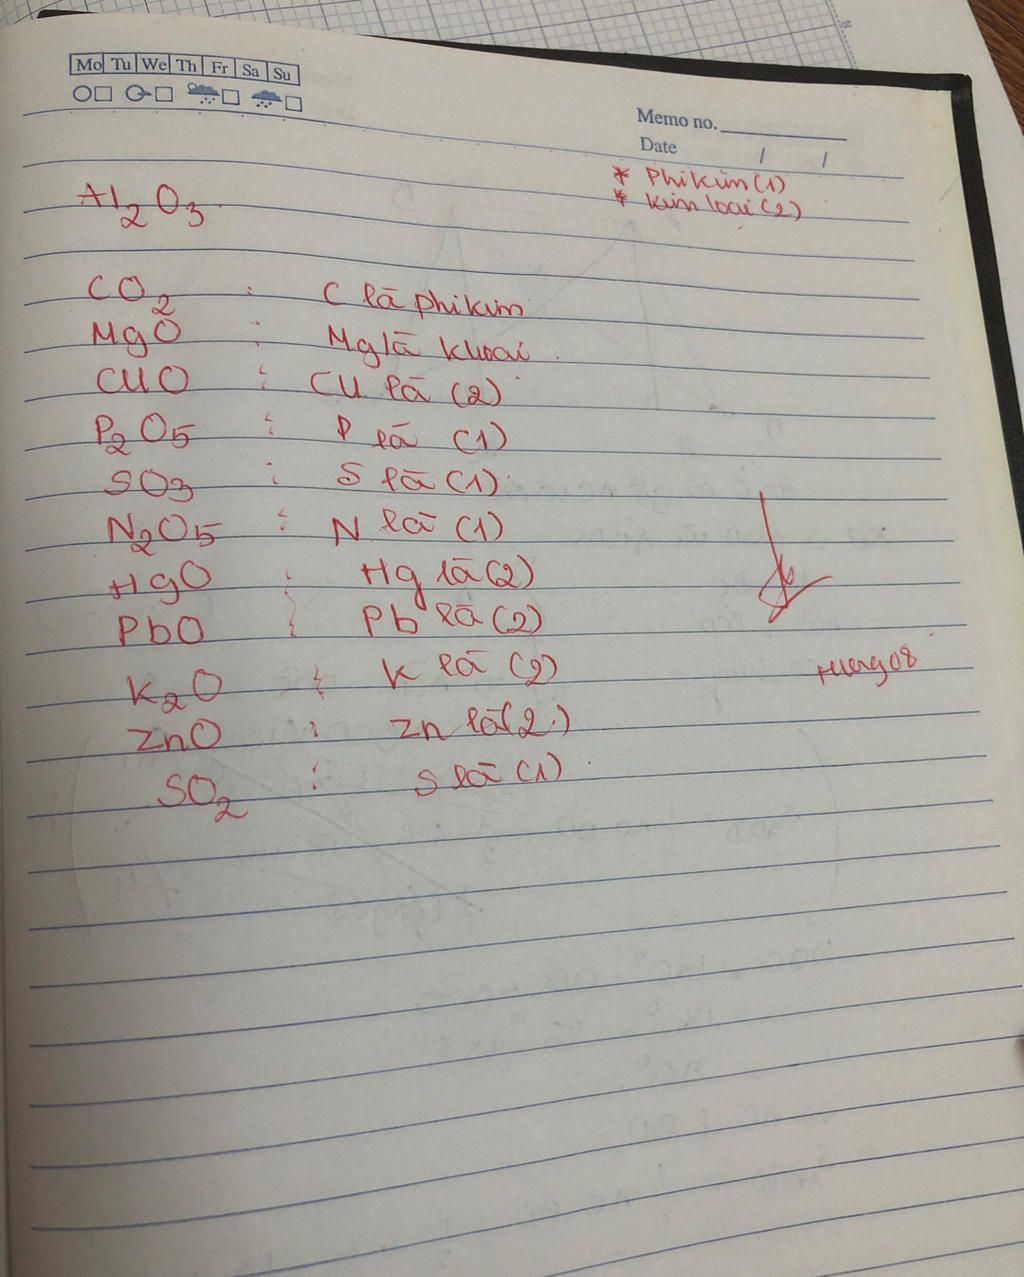 Mo Tu We Th Fr Sa Su
Memo no.
Date / /
* Phi kim (1)
* Kim loại (2)
Al2O3
CO2 : C là phi kim
MgO : Mg là kloại.
CuO : Cu là (2)
P2O5 : P là (1)
SO3 : S là (1)
N2O5 : N là (1)
HgO : Hg là (2)
PbO : Pb là (2)
K2O : K là (2)
ZnO : Zn là (2)
SO2 : S là (1)